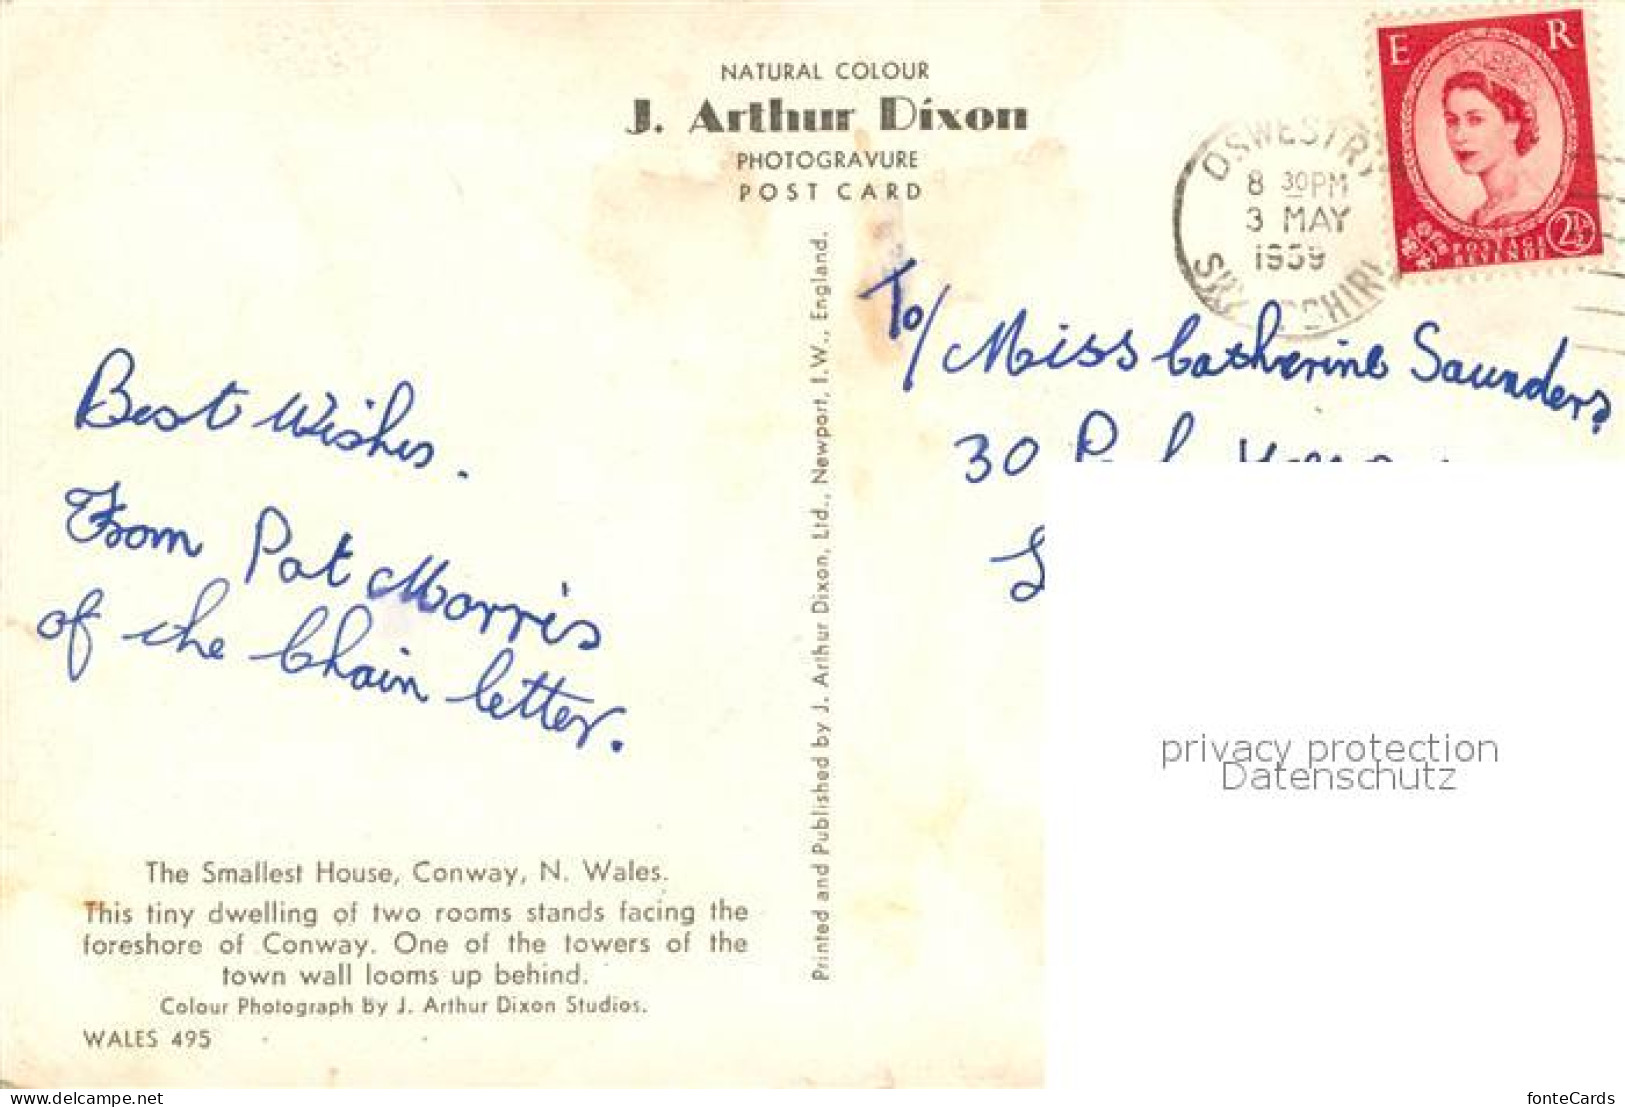 NATURAL COLOUR
J. Arthur Dixon
PHOTOGRAVURE
POST CARD
E R
POSTAGE
REVENUE
2½
OSWESTRY
8 30PM
3 MAY
1959
Best Wishes.
From Pat Morris
of the Chain letter.
To/ Miss Catherine Saunders,
30
Printed and Published by J. Arthur Dixon, Ltd., Newport, I.W., England.
privacy protection
Datenschutz
The Smallest House, Conway, N. Wales.
This tiny dwelling of two rooms stands facing the
foreshore of Conway. One of the towers of the
town wall looms up behind.
Colour Photograph by J. Arthur Dixon Studios.
WALES 495
ak-ansichtskarten.de
fonteCards